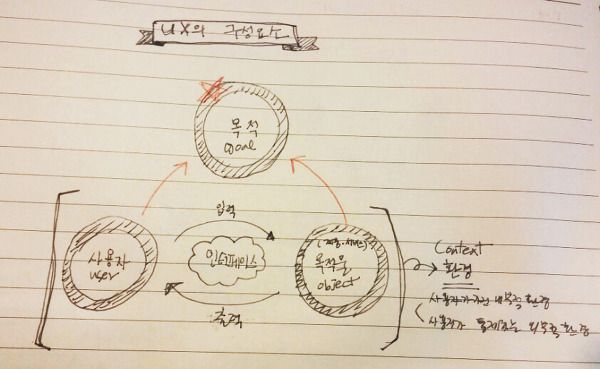 UX의 구성요소
목적
Goal
입력
사용자
user
인터페이스
(제품·서비스)
목적물
object
출력
Context
환경
사용자가 가진 내부적 환경
사용자가 통제하는 외부적 환경